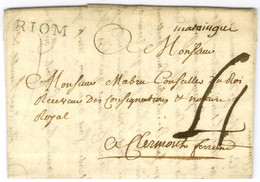 RIOM
maringues
A
Monsieur
Monsieur Mabru Conseiller du Roi
Receveur des Consignations & notaire
Royal
A Clermont ferrand